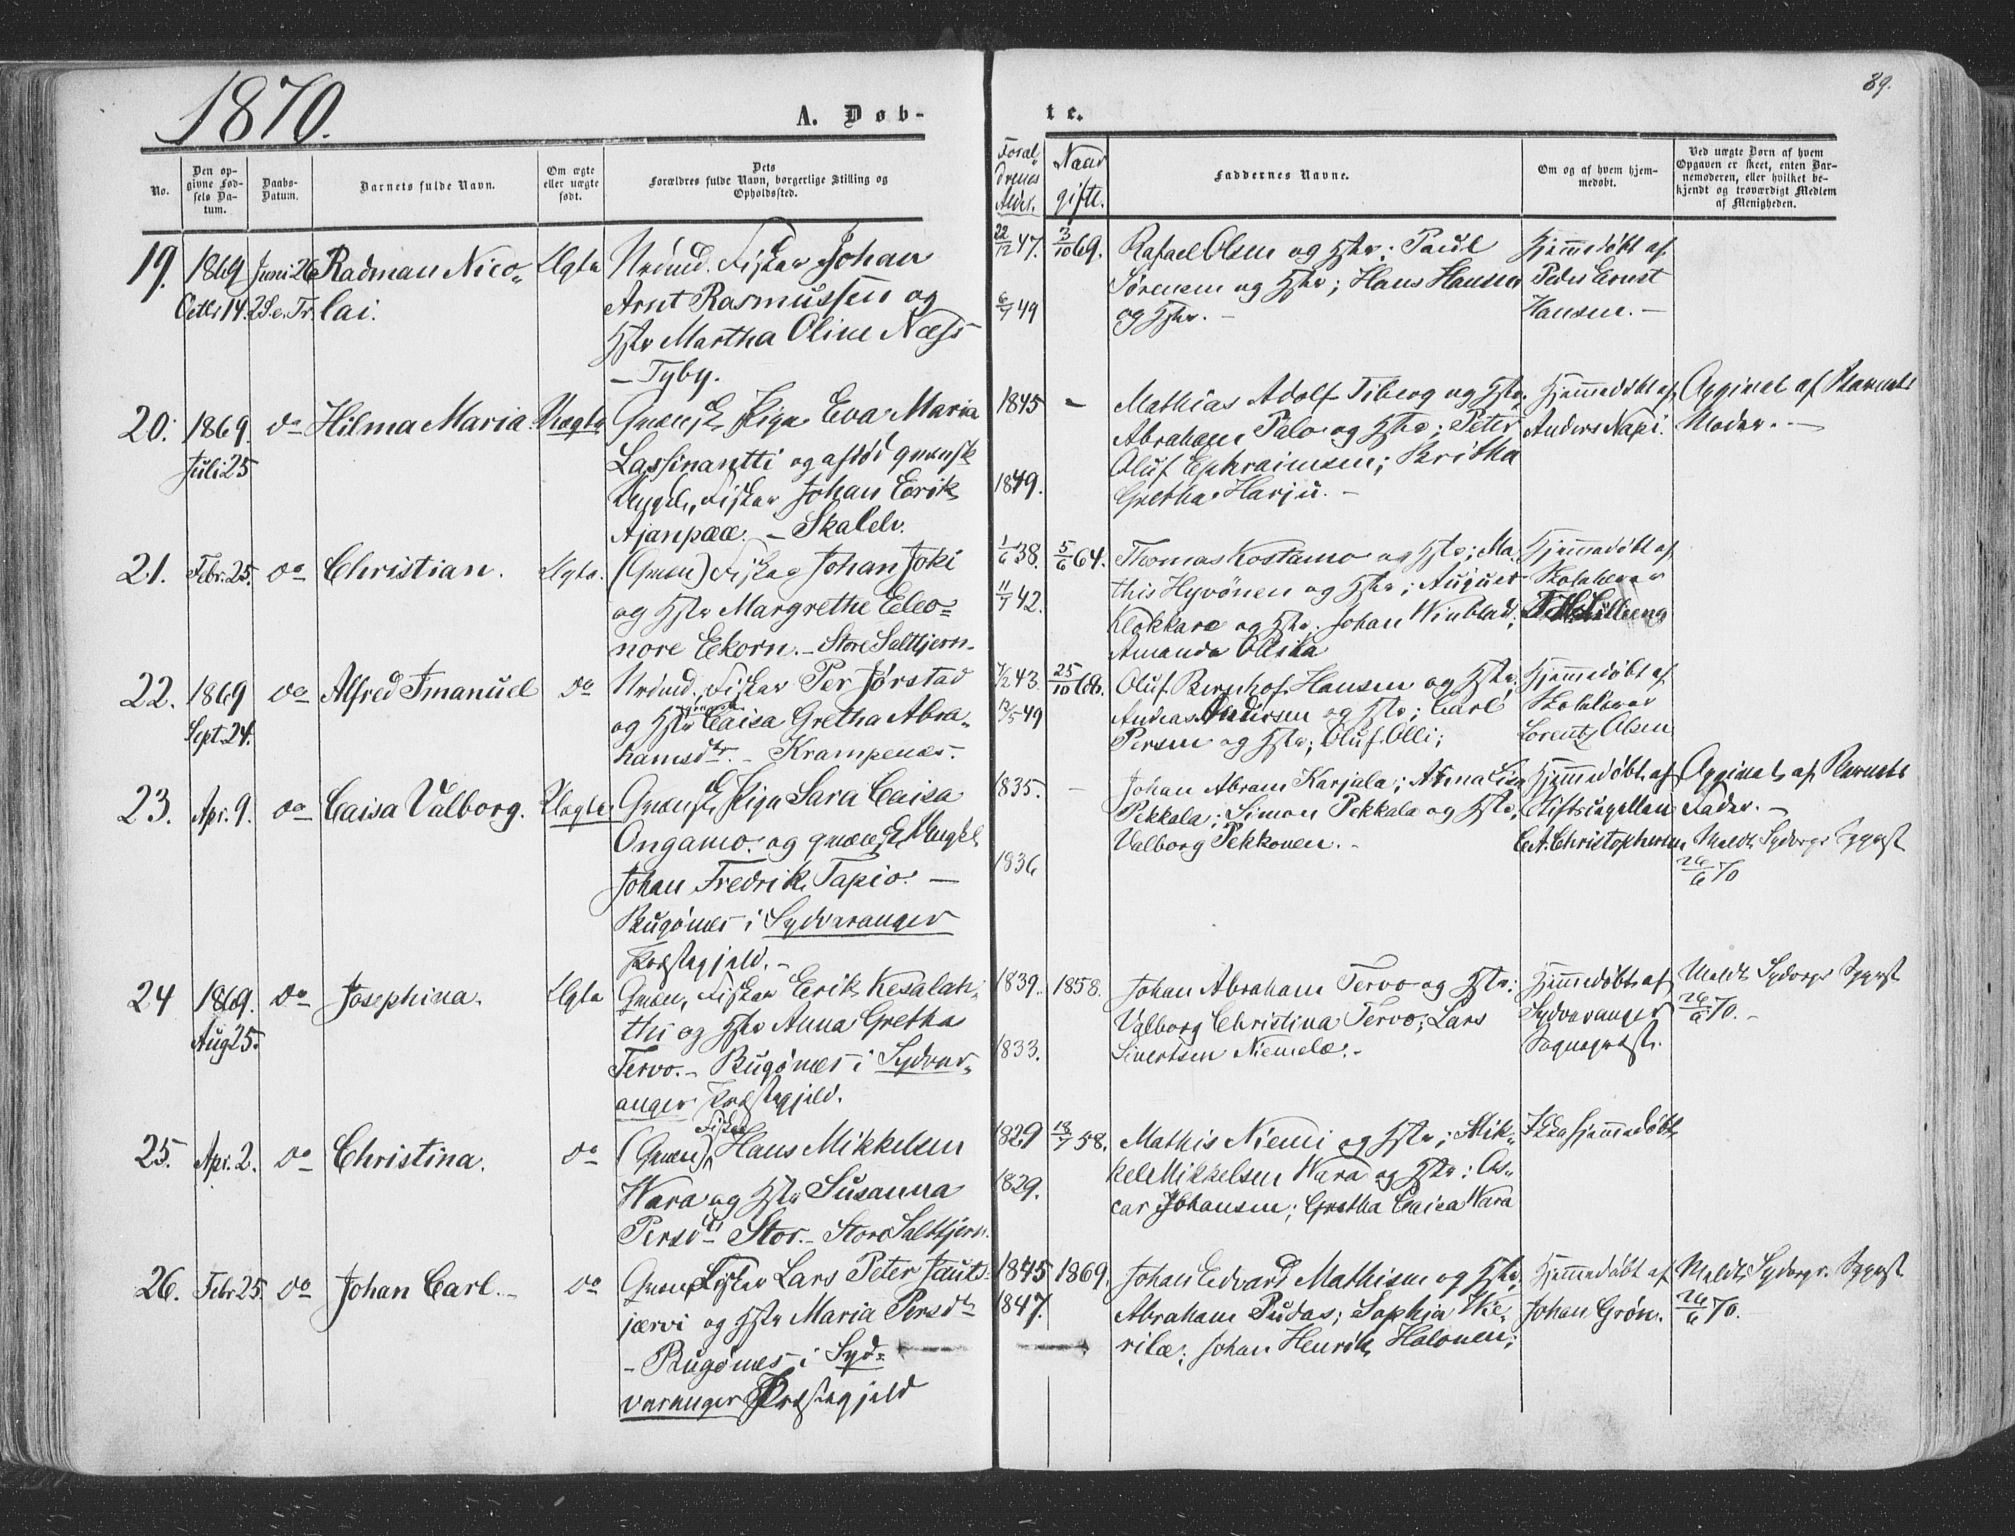 1870.
89.
A. Døb-
te.
No.
Den op-
givne Fød-
sels Da-
tum.
Daabs-
Datum.
Barnets fulde Navn.
Om ægte
eller uægte
født.
Dets
Forældres fulde Navn, borgerlige Stilling og
Opholdssted.
Foræl-
drenes
Alder.
Naar
gifte.
Faddernes Navne.
Om og af hvem hjem-
medøbt.
Ved uægte Børn af hvem
Opgaven er skeet, enten Bar-
nemoderen, eller hvilket be-
kjendt og troværdigt Medlem
af Menigheden.
19.
1869
Octbr 14.
Juni 26
2 S. e. Tr.
Radman Nico-
lai.
Ægte
Nrdmd. Fisker Johan
Arnt Rasmussen og
Hstr Martha Oline Næss
- Tyby.
22/12 47.
6/7 49
3/10 69.
Rafael Olsen og Hstr; Paul
Sørensen og Hstr; Hans Hansen
og Hstr. -
Hjemmedøbt af
Peder Ernst
Hansen. -
20.
1869.
Juli 25
do
Hilma Maria.
Uægte
Qvænsk Pige Eva Maria
Lassinantti og afdød qvænsk
Ungk., Fisker Johan Eerik
Ajanpææ. - Skalelv.
1845
1849.
-
Mathias Adolf Fiberg og Hstr.
Abraham Palo og Hstr; Peter
Oluf Ephraimsen; Britha
Gretha Harju. -
Hjemmedøbt af
Anders Napi.
Opgivet af Barnets
Moder. -
21.
Febr. 25.
do
Christian.
Ægte.
(Qvæn) Fisker Johan Joki
og Hstr Margrethe Eleo-
nore Ekorn. - Store Saltkjern.
1/6 38.
11/7 42.
5/6 64.
Thomas Kostamo og Hstr; Ma-
this Hyvönen og Hstr; August
Klokkare og Hstr. Johan Winblad;
Amanda Ollila
Hjemmedøbt af
Skolelærer
22.
1869
Sept. 24.
do
Alfred Imanuel
do
Nrdmd. Fisker Per Jørstad
og Hstr Caisa Gretha Abra-
hamsdtr. - Krampenæs.
7/12 43.
12/5 49
25/10 68.
Oluf Bernhof Hansen og Hstr;
Andreas Andersen og Hstr; Carl
Persen og Hstr; Oluf Olli;
Hjemmedøbt af
Skolelærer
Lorentz Olsen
23.
Apr. 9.
do
Caisa Valborg.
Uægte
Qvænsk Pige Sara Caisa
Ongamo. og qvænsk Ungk.
Johan Fredrik Tapio. -
Bugønæs i Sydvaranger
Præstegjeld. -
1835.
1836
-
Johan Abram Karjala; Anna Lisa
Pekkala; Simon Pekkala og Hstr;
Valborg Pekkonen. -
Hjemmedøbt af
Stiftscapellan
C.A. Christophersen
Opgivet af Barnets
Fader. -
Meldt Sydvrgr Sgprst
26/6 70
24
1869.
Aug 25.
do
Josephina.
Ægte
Qvæn, Fisker Erik Kesalah-
thi og Hstr Anna Gretha
Tervo. - Bugønæs i Sydvar-
anger Præstegjeld.
1839.
1833.
1858.
Johan Abraham Tervo og Hstr;
Valborg Christina Tervo; Lars
Sivertsen Niemelæ. -
Hjemmedøbt af
Sydvaranger
Sognepræst.
Meldt Sydvrgr Sgprst
26/6 70. -
25.
Apr. 2.
do
Christina.
do
Fisker
(Qvæn) Hans Mikkelsen
Wara og Hstr Susanna
Persdtr Stor. - Store Saltkjern.
1829
1829.
18/7 58.
Mathis Niemi og Hstr; Mik-
kel Mikkelsen Wara og Hstr: Os-
car Johansen; Gretha Caisa Wara
Ikke hjemmedøbt
26.
Febr 25
do
Johan Carl. -
do
Qvæn Fisker Lars Peter Jauts-
jærvi og Hstr Maria Persdtr
- Bugønæs i Syd-
varanger Præstegjeld
1845
1847.
1869.
Johan Edvard Mathisen og Hstr.
Abraham Pudas; Sophia Wie-
rilæ; Johan Henrik Halonen;
Hjemmedøbt af
Johan Grøn.
Meldt Sydvrgr. Sgprst
26/6 70.